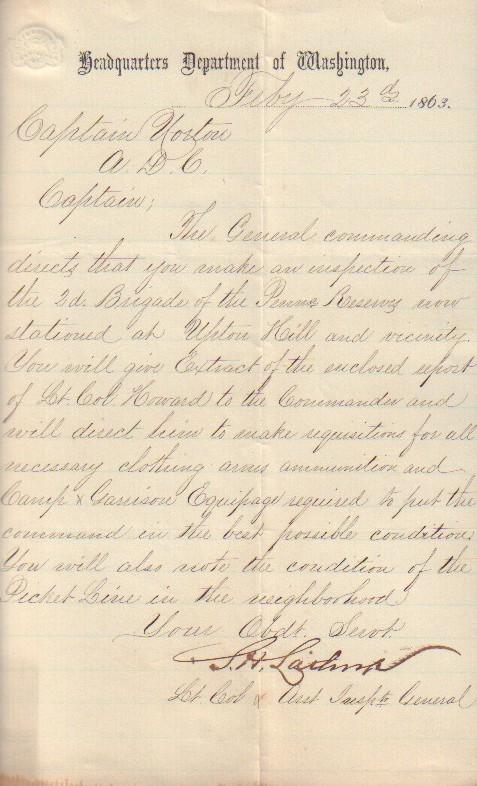 Headquarters Department of Washington,
Feby 23d 1863.
Captain Norton
A. D. C.
Captain;
The General commanding
directs that you make an inspection of
the 2d. Brigade of the Penna Reserves now
stationed at Upton Hill and vicinity.
You will give Extract of the enclosed report
of Lt Col Howard to the Commander and
will direct him to make requisitions for all
necessary clothing arms ammunition and
Camp & Garrison Equipage required to put the
command in the best possible condition.
You will also note the condition of the
Picket Line in the neighborhood
Your Obdt. Servt.
S. H.
Lt. Col & Asst Inspt General